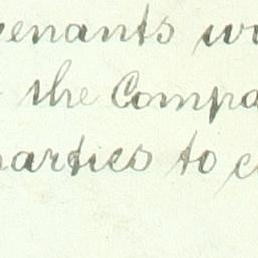 venants w
the Compa
parties to c